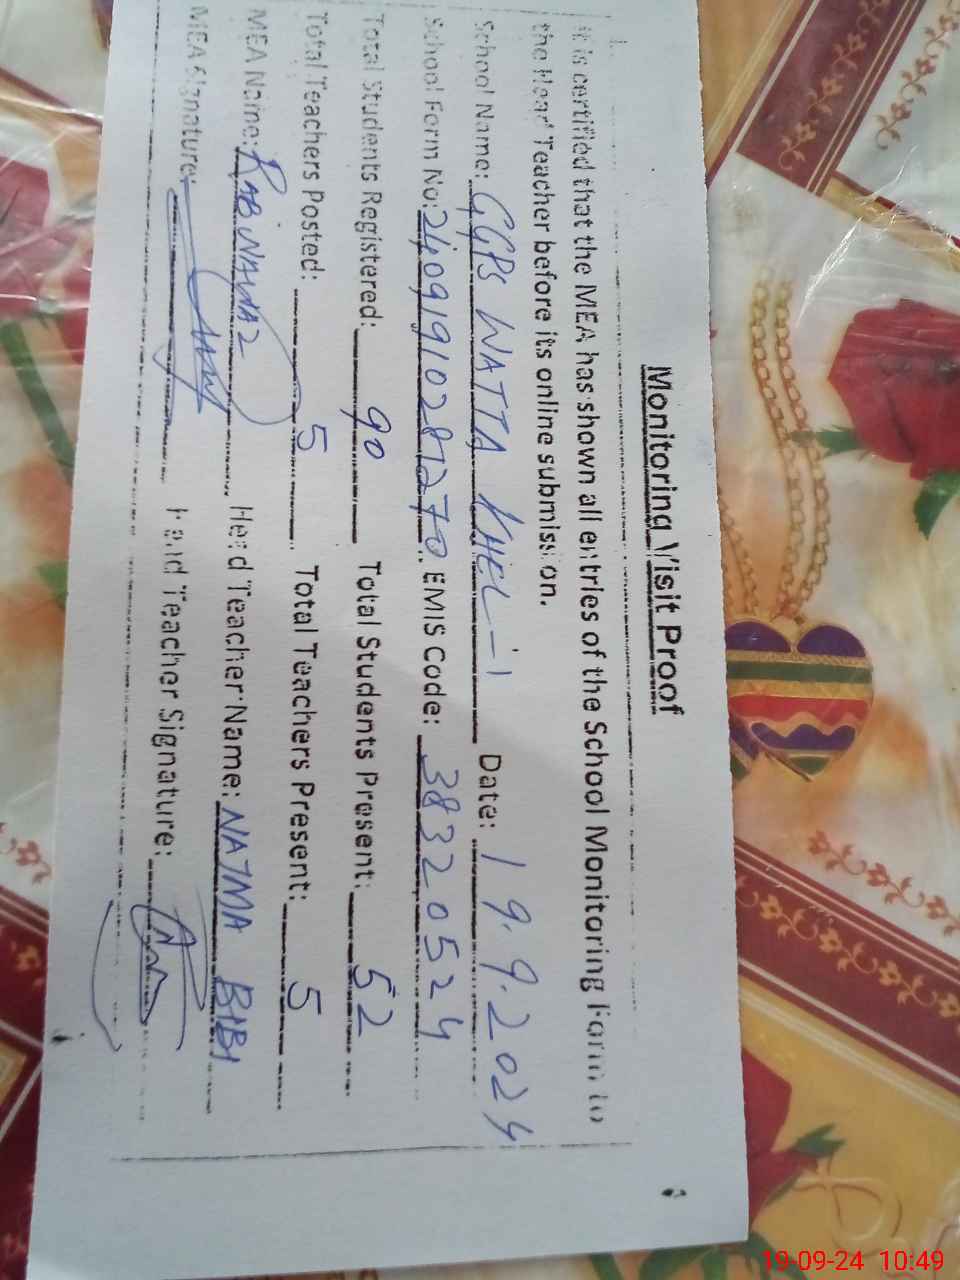 Monitoring Visit Proof
It is certified that the MEA has shown all entries of the School Monitoring Form to
the Head Teacher before its online submission.
School Name: GGPS WATTA KHEL-1 Date: 19.9.2024
School Form No: 24091910281270 EMIS Code: 38320524
Total Students Registered: 90 Total Students Present: 52
Total Teachers Posted: 5 Total Teachers Present: 5
MEA Name: RABNAWAZ Head Teacher Name: NAJMA BIBI
MEA Signature: Head Teacher Signature:
19-09-24 10:49